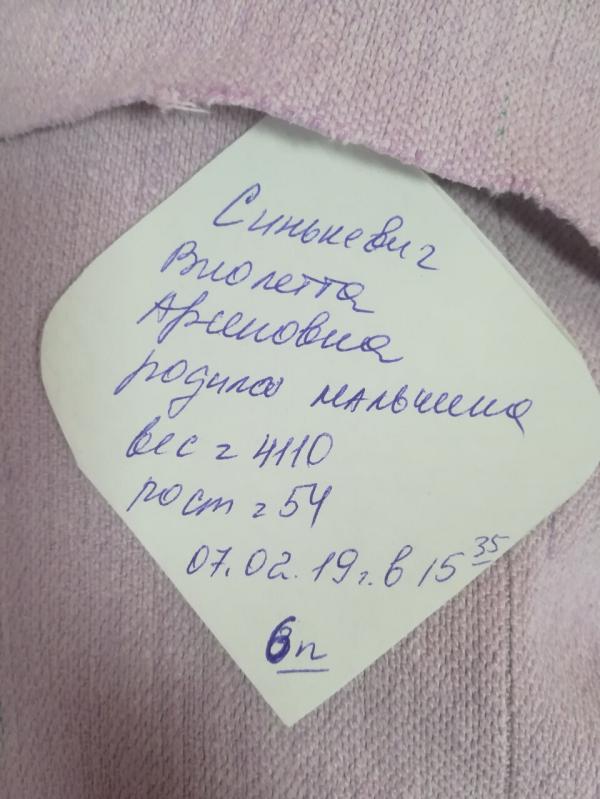 Синькевич
Виолетта
Арсеновна
родила мальчика
вес = 4110
рост = 54
07.02.19г. в 15 35
6п